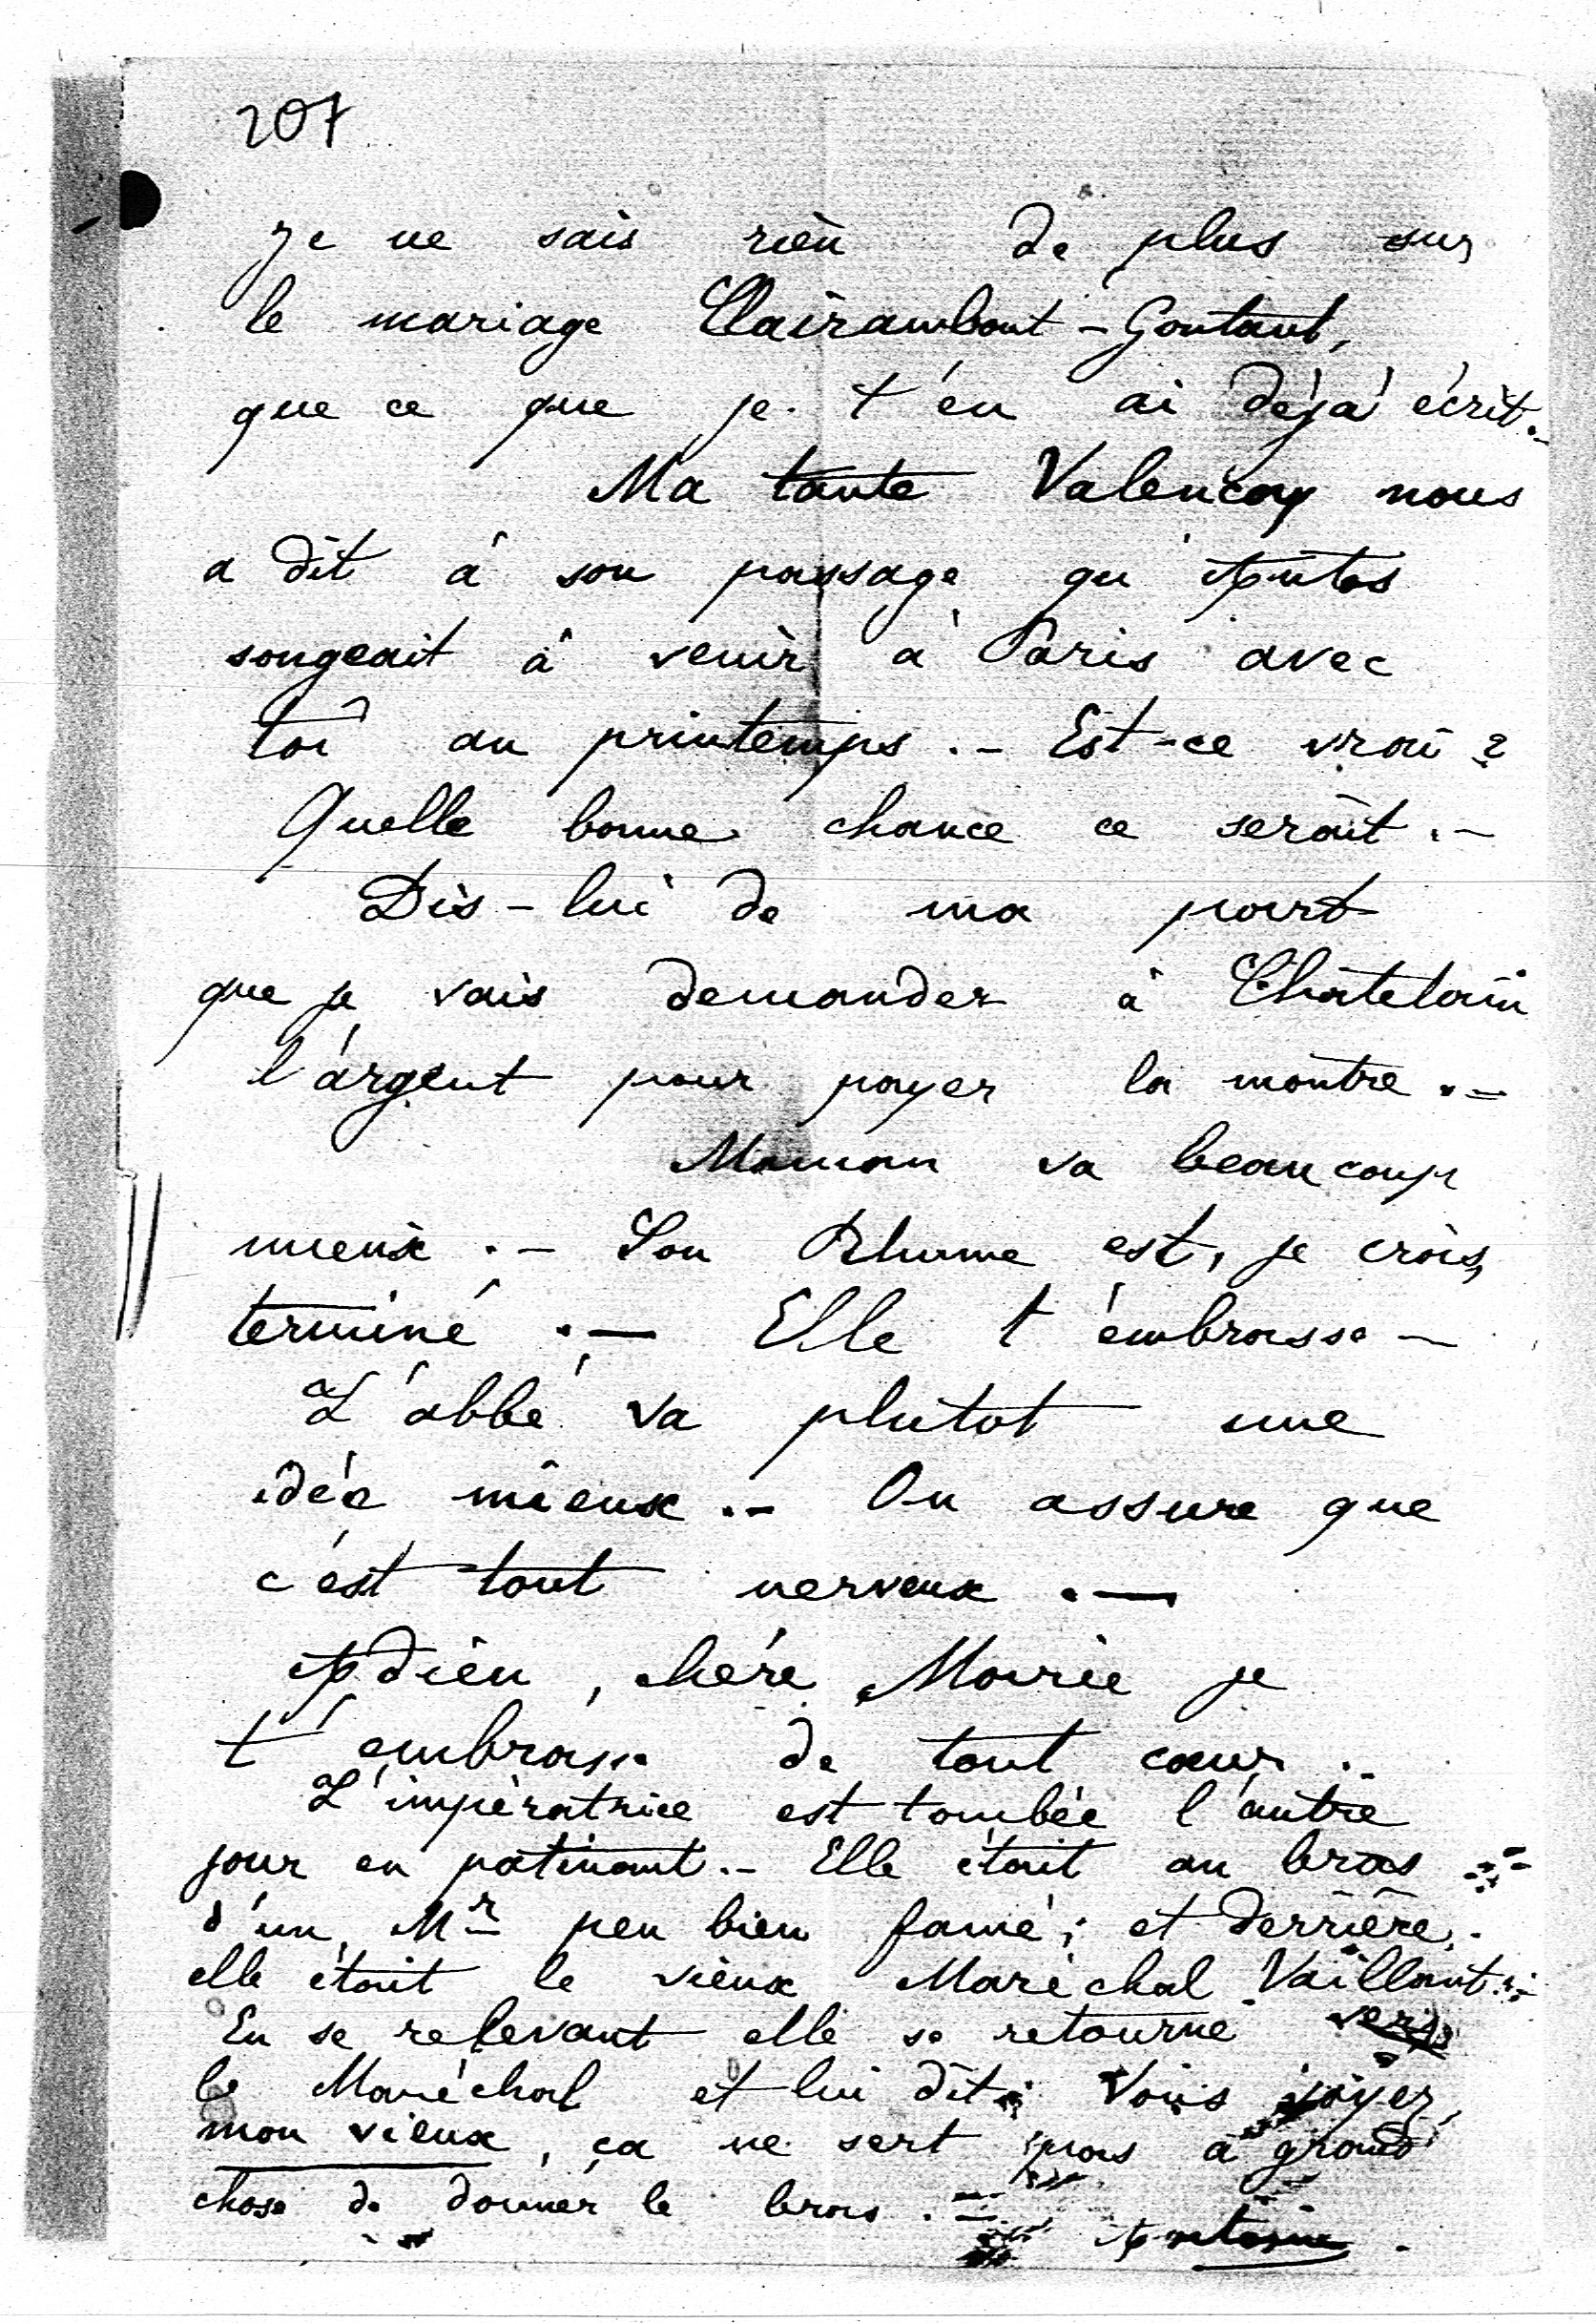 207
Je ne sais rien de plus sur
le mariage Clairambout-Gontaut,
que ce que je t'en ai déjà écrit.-
Ma tante Valençay nous
a dit à son passage qu'
songeait à venir à Paris avec
toi au printemps.- Est-ce vrai ?
Quelle bonne chance ce serait.-
Dis-lui de ma part
que je vais demander à Châtelain
l'argent pour payer la montre.-
Maman va beaucoup
mieux.- Son Rhume est, je crois,
terminé.- Elle t'embrasse-
L'abbé va plutot une
idée mieux.- On assure que
c'est tout nerveux.-
Adieu, chère Marie je
t'embrasse de tout cœur.-
L'impératrice est tombée l'autre
jour en patinant.- Elle était au bras
d'un Mr peu bien famé; et derrière
elle était le vieux Maréchal Vaillant.-
En se relevant elle se retourne vers
le Maréchal et lui dit: Vous voyez,
mon vieux, ça ne sert pas à grand
chose de donner le bras.-
Antoine.